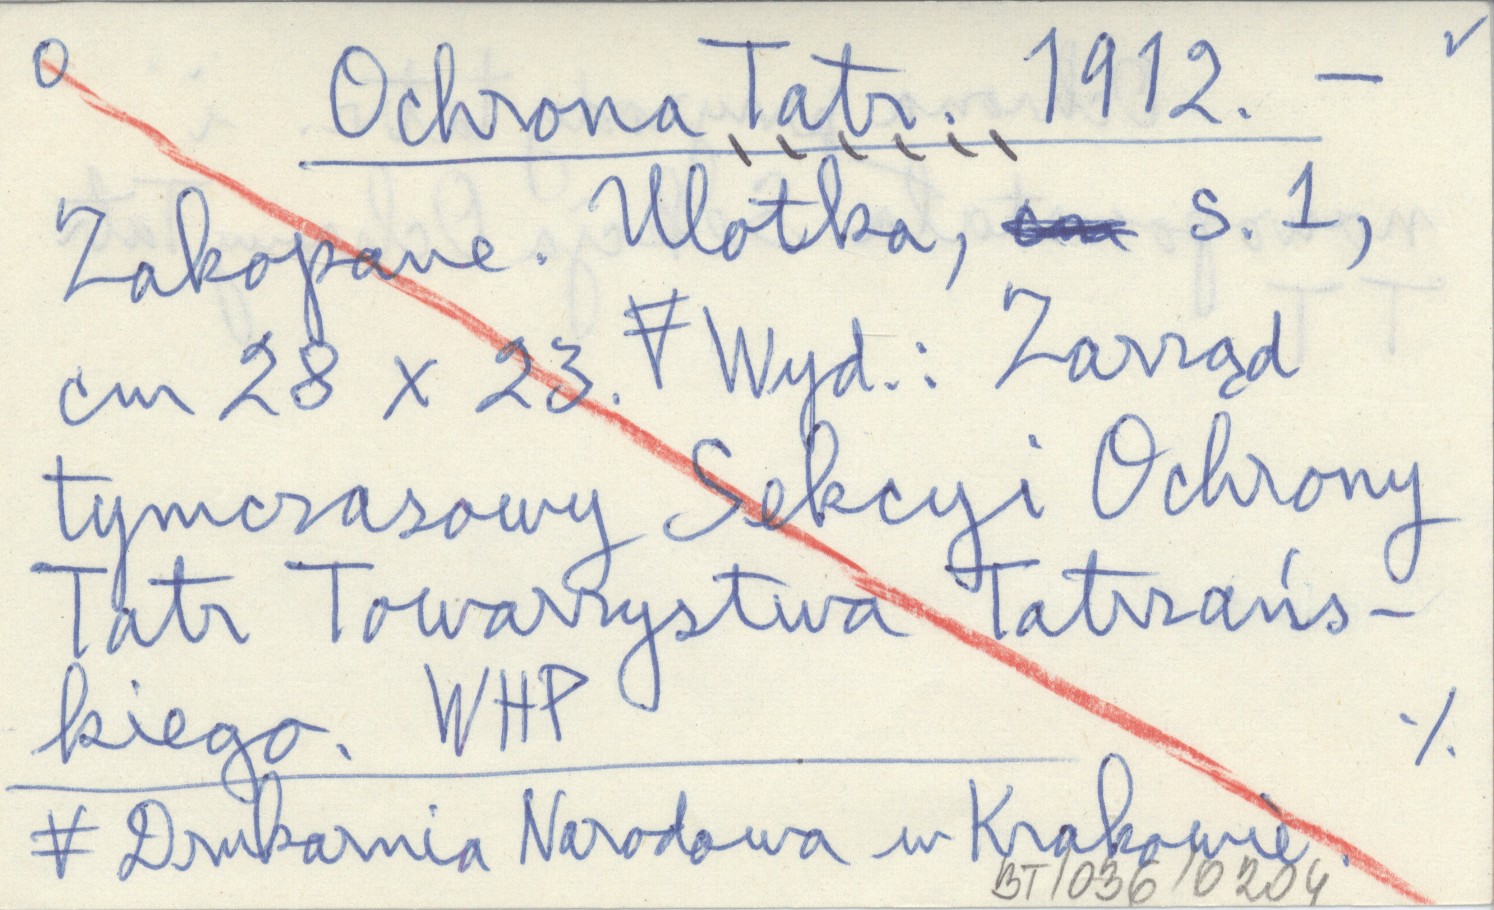 O Ochrona Tatr. 1912. — ✓
Zakopane. Ulotka, s. 1,
cm 28 x 23. # Wyd.: Zarząd
tymczasowy Sekcyi Ochrony
Tatr Towarzystwa Tatrzańs-
kiego. WHP
·/.
# Drukarnia Narodowa w Krakowie.
BT/036/0204